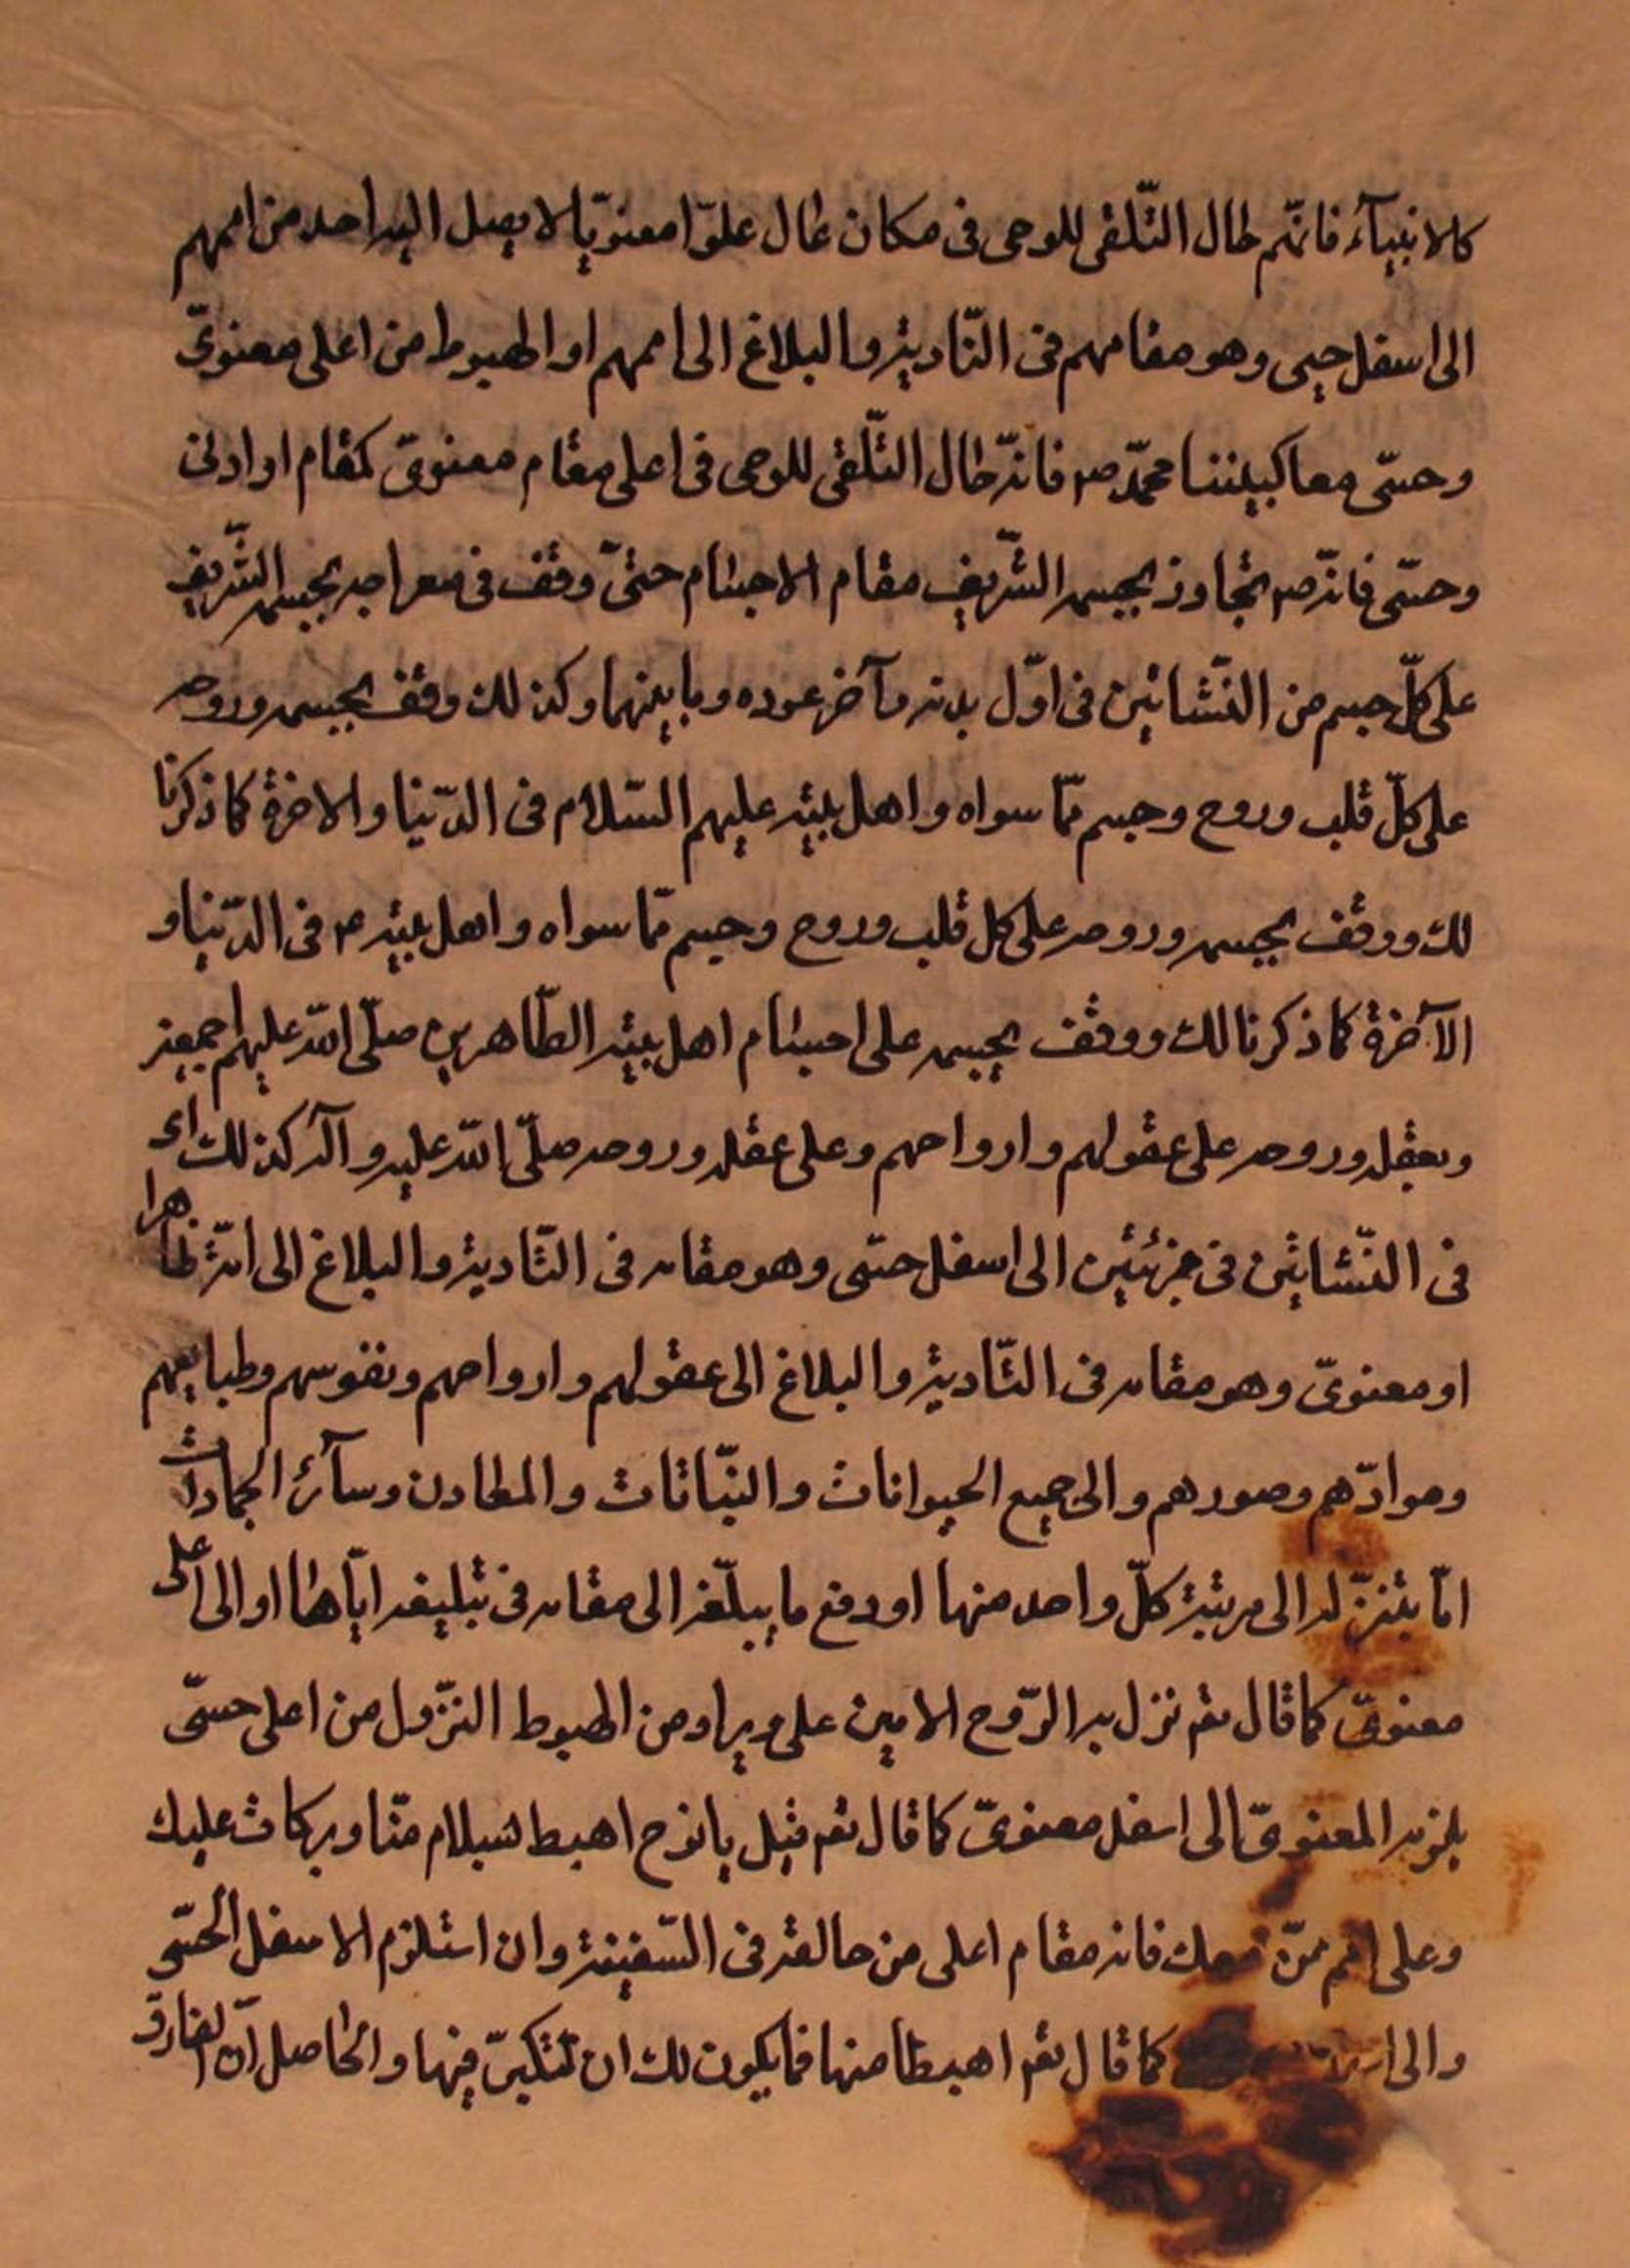 كالانبيآء فانّهم حال التّلقى للوحى فى مكان عال علوّا معنويّا لا يصل اليه احد من اممهم
الى اسفل حسى وهو مقامهم فى التّادية والبلاغ الى اممهم او الهبوط من اعلى معنوىّ
وحسّى معا كنبيّنا محمّد ص فانّه حال التّلقى للوحى فى اعلى مقام معنوىّ كمقام او ادنى
وحسّى فانّه ص تجاوز بجسمه الشّريف مقام الاجسام حتىّ وقف فى معراجه بجسمه الشّريف
على كلّ جسم من النّشاتين فى اوّل بدئه وآخر عوده وما بينهما وكذلك وقف بجسمه وروحه
على كلّ قلب وروح وجسم ممّا سواه واهل بيته عليهم السّلام فى الدّنيا والاخرة كما ذكرنا
لك ووقف بجسمه وروحه على كل قلب وروح وجسم ممّا سواه واهل بيته ع فى الدّنيا و
الآخرة كما ذكرنا لك ووقف بجسمه على اجسام اهل بيته الطّاهرين صلّى الله عليهم اجمعين
وبعقله وروحه على عقولهم وارواحهم وعلى عقله وروحه صلّى الله عليه وآله كذلك اى
فى النّشاتين فى جزئين الى اسفل حسّى وهو مقامه فى التّادية والبلاغ الى امّته ظاهرا
او معنوىّ وهو مقامه فى التّادية والبلاغ الى عقولهم وارواحهم ونفوسهم وطبايعهم
وموادّهم وصورهم والى جميع الحيوانات والنّباتات والمعادن وسآئر الجمادات
امّا بتنزّله الى مرتبة كلّ واحد منها او رفع ما يبلّغه الى مقامه فى تبليغه ايّاها او الى اعلى
معنوىّ كما قال تعم نزل به الرّوح الامين على من الهبوط النّزول من اعلى حسّى
المعنوىّ الى اسفل معنوىّ كما قال تعم قيل يا نوح اهبط بسلام منّا وبركات عليك
وعلى امم ممّن معك فانه مقام اعلى من حالته فى السّفينة وان استلزم الاسفل الحسّى
والى كما قال تعم اهبط منها فما يكون لك ان تتكبّر فيها والحاصل انّ الفارق